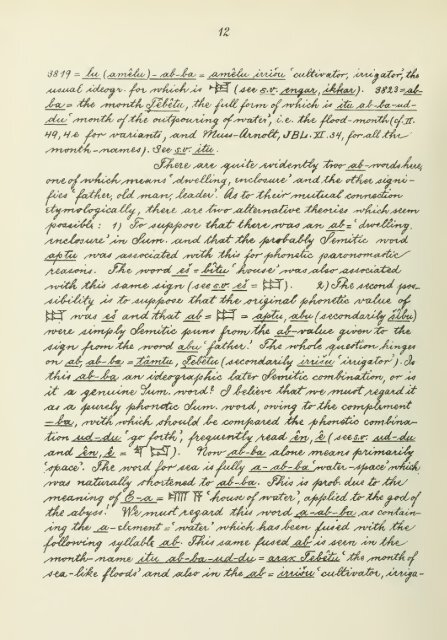 12
3819 = lu (amêlu)-ab-ba = amêlu irrišu 'cultivator, irrigator', the
usual ideogr. for which is 𒀳 (see s.v. engar, ikkar). 3823 = ab-
ba = the month Ṭebêtu, the full form of which is itu ab-ba-ud-
du 'month of the outpouring of water', i.e. the flood-month (cf. II.
49, 4e for variants, and Muss-Arnolt, JBL. XI. 34, for all the
month-names). See s.v. itu.
There are quite evidently two ab-words here,
one of which means 'dwelling, enclosure' and the other signi-
fies 'father, old man, leader'. As to their mutual connection
etymologically, there are two alternative theories which seem
possible: 1) To suppose that there was an ab = 'dwelling,
enclosure' in Sum. and that the probably Semitic word
aptu was associated with this for phonetic paronomastic
reasons. The word eš = bîtu 'house' was also associated
with this same sign (see s.v. eš = 𒀊). 2) The second pos-
sibility is to suppose that the original phonetic value of
𒀊 was eš and that ab = 𒀊 = aptu, abu (secondarily šîbu)
were simply Semitic puns from the ab-value given to the
sign from the word abu 'father'. The whole question hinges
on ab, ab-ba = tâmtu, Ṭebêtu (secondarily irrišu 'irrigator'). Is
this ab-ba an ideographic later Semitic combination, or is
it a genuine Sum. word? I believe that we must regard it
as a purely phonetic Sum. word, owing to the complement
-ba, with which should be compared the phonetic combina-
tion ud-du 'go forth', frequently read ên, ê (see s.v. ud-du
and ên, ê = 𒌓𒁺). Now ab-ba alone means primarily
'space'. The word for sea is fully a-ab-ba 'water-space' which
was naturally shortened to ab-ba. This is prob. due to the
meaning of E-a = 𒂍 𒀀 'house of water', applied to the god of
the abyss. We must regard this word a-ab-ba as contain-
ing the a-element = 'water' which has been fused with the
following syllable ab. This same fused ab is seen in the
month-name itu ab-ba-ud-du = arax Ṭebêtu 'the month of
sea-like floods' and also in the ab = irrišu 'cultivator, irriga-